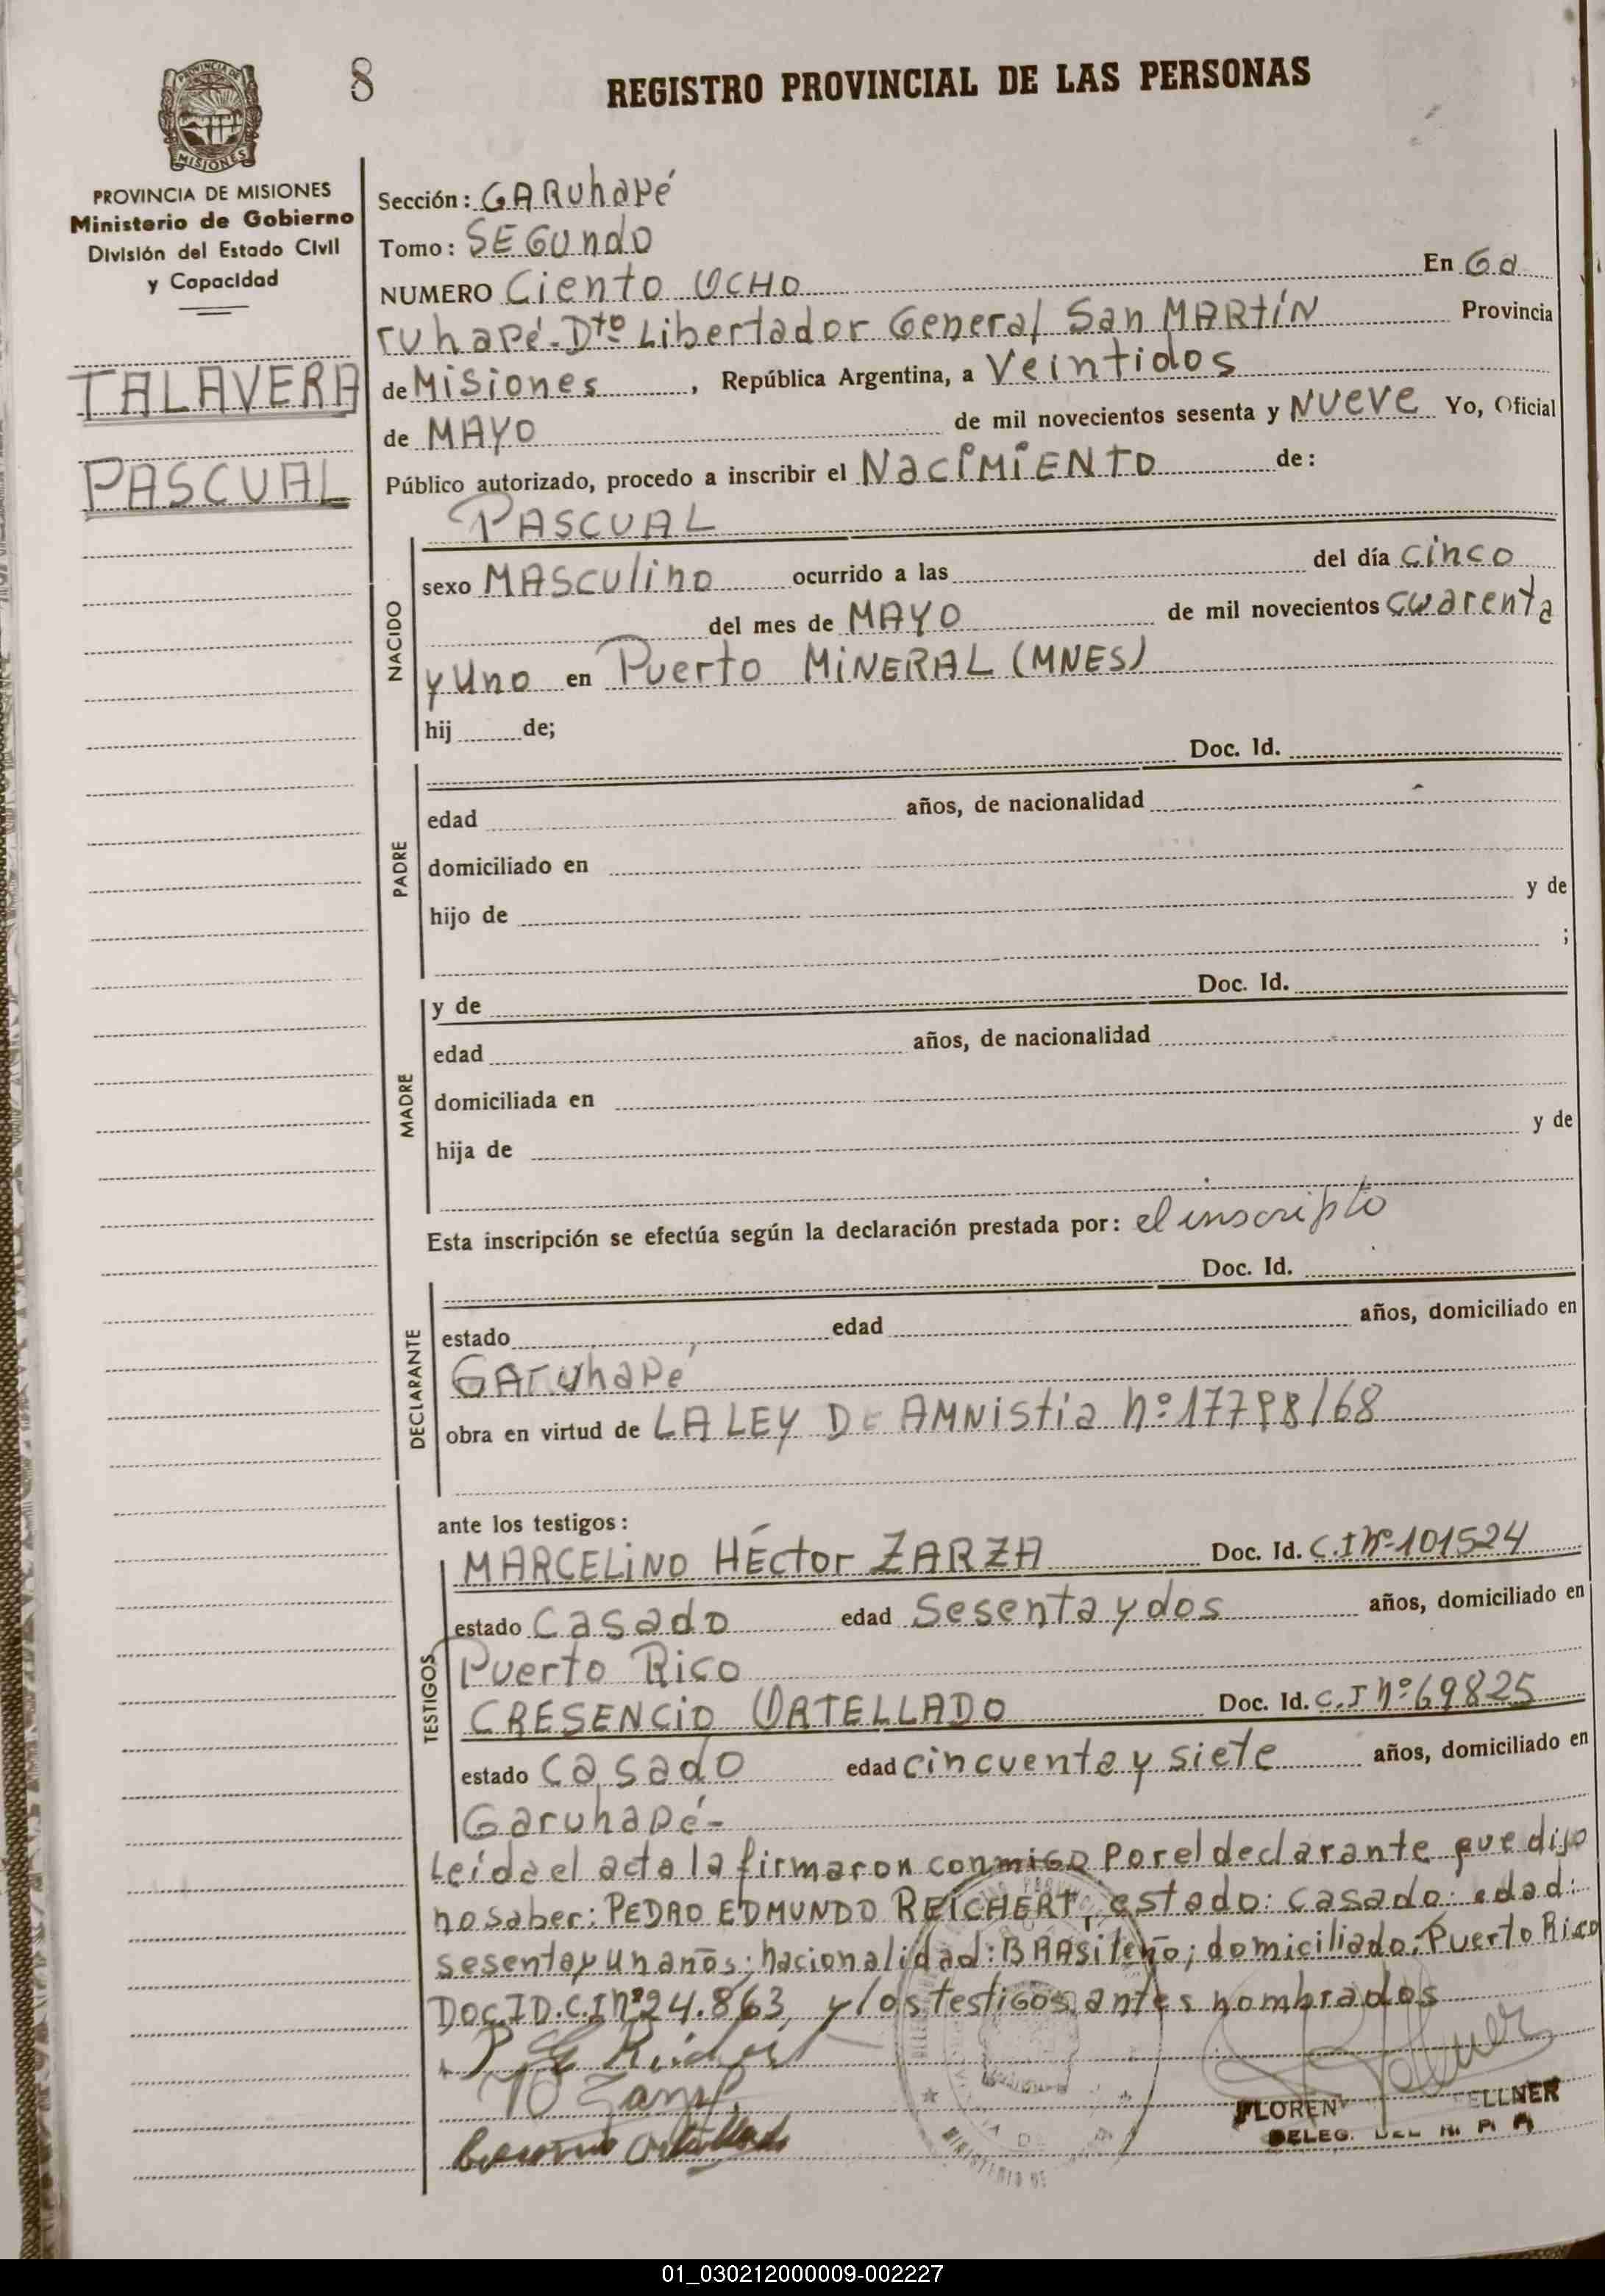 8
REGISTRO PROVINCIAL DE LAS PERSONAS
PROVINCIA DE
MISIONES
PROVINCIA DE MISIONES
Ministerio de Gobierno
División del Estado Civil
y Capacidad
TALAVERA
PASCUAL
Sección: GARuhapé
Tomo: SEGundo
NUMERO Ciento OCHO En Ga
ruhapé-Dto Libertador General San MARtíN Provincia
de Misiones, República Argentina, a Veintidos
de MAYO de mil novecientos sesenta y NUeVe Yo, Oficial
Público autorizado, procedo a inscribir el NaciMiENTO de:
PASCUAL
NACIDO
sexo MASCulino ocurrido a las del día cinco
del mes de MAYO de mil novecientos cuarenta
y Uno en Puerto MiNERAL (MNES)
hij de;
Doc. Id.
PADRE
edad años, de nacionalidad
domiciliado en
hijo de y de
;
MADRE
y de Doc. Id.
edad años, de nacionalidad
domiciliada en
hija de y de
Esta inscripción se efectúa según la declaración prestada por: el inscripto
Doc. Id.
DECLARANTE
estado edad años, domiciliado en
GAruhapé
obra en virtud de LA LEY DE AMNistia nº 17798/68
ante los testigos:
TESTIGOS
MARCELiNO HÉctor ZARZA Doc. Id. C.I Nº-101524
estado Casado edad Sesenta y dos años, domiciliado en
Puerto Rico
CRESENCiO ORTELLADO Doc. Id. C.I nº 69825
estado Casado edad cincuenta y siete años, domiciliado en
Garuhapé-
Leida el acta la firmaron conmigo Por el declarante que dijo
no saber: PEDRO EDMUNDO REICHERT, estado: casado: edad:
sesenta y un años; nacionalidad: BRASileño; domiciliado: Puerto Rico
Doc. ID. C.I nº 24.863, y los testigos antes nombrados
DELEG. DEL
01_030212000009-002227